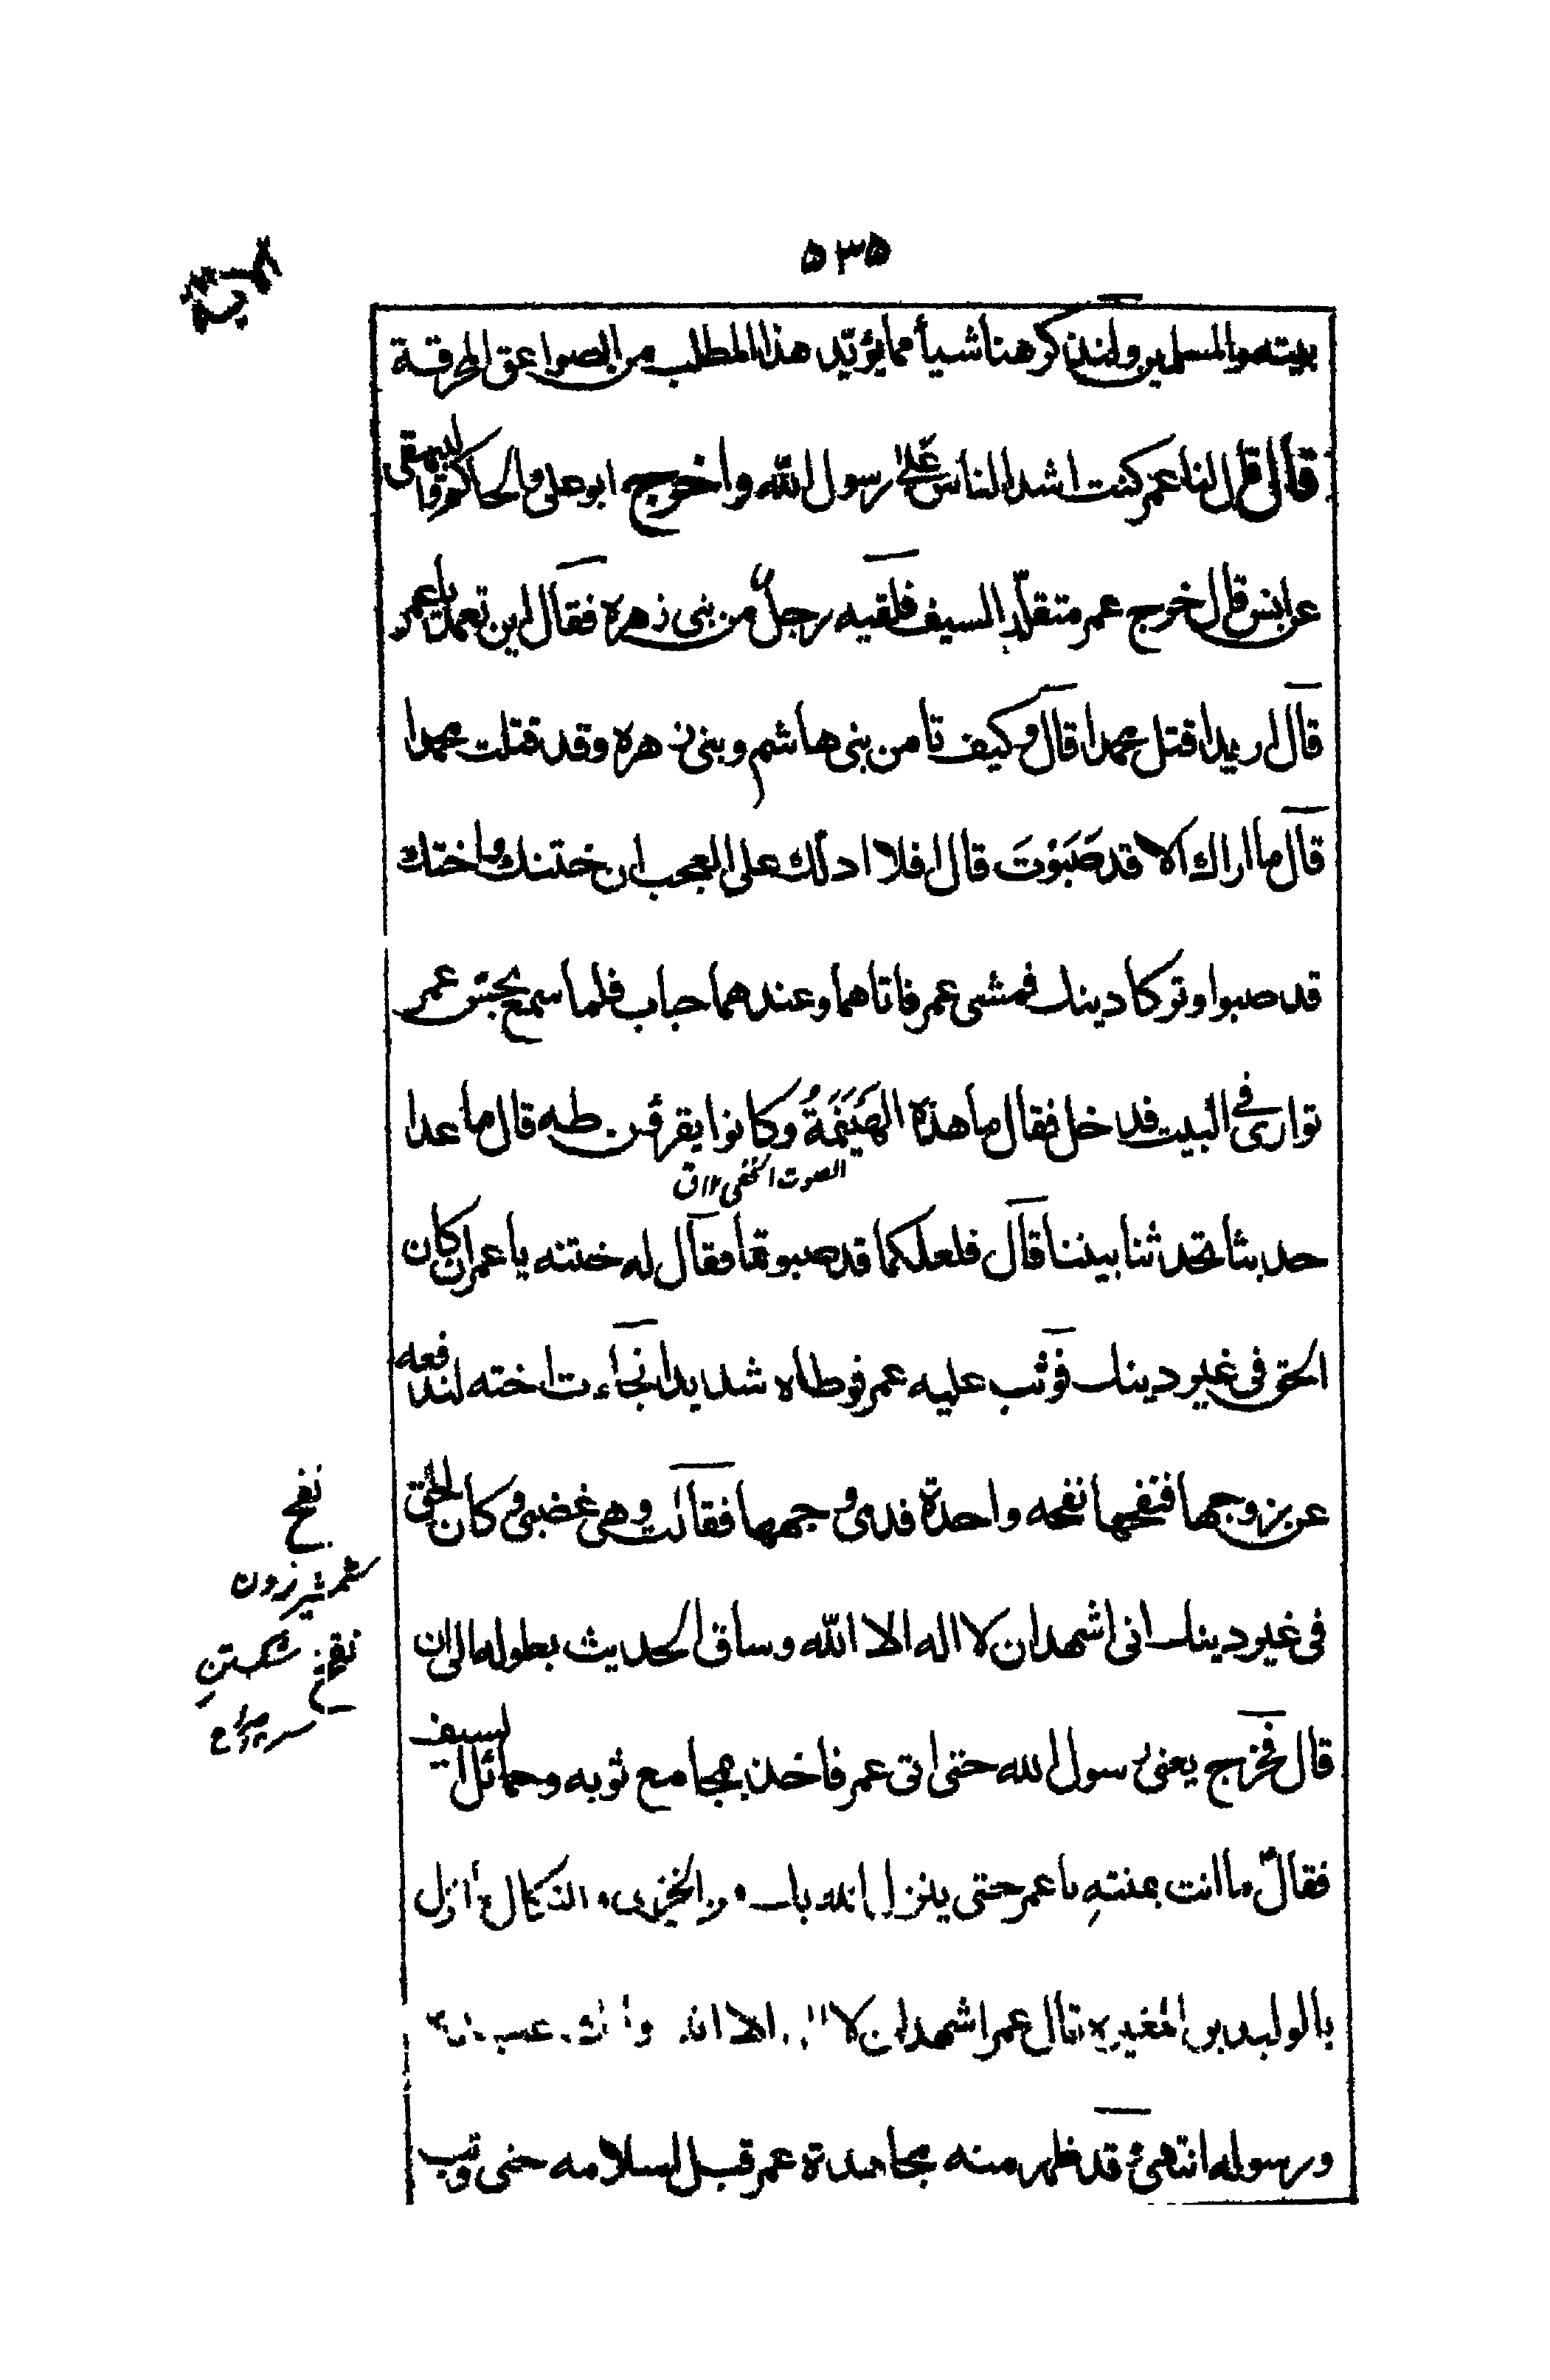 ۵۳۵
بهيته والمسلمين ولنذكر هنا شيأ مما يؤيّد هذا المطلب من الصواعق المحرقة
قال قال لنا عمر كنت اشد الناس على رسول الله واخرج ابو على والحاكم والبيهقى
عن انس قال خرج عمر متقلّد السيف فلقيه رجلٌ من بنى زهره فقال اين تعمد يا عمر
قال اريد اقتل محمدا قال وكيف تامن بنى هاشم وبنى زهره وقد قتلت محمدا
قال ما اراك الا قد صَبَوْتَ قال افلا ادلّك على العجب ان ختنك واختك
قد صبوا وتركا دينك فمشى عمر فاتاهما وعندهما حباب فلما سمع بحبس عمر
توارى فى البيت فدخل فقال ما هذه الهَيْنَمَةُ وكانوا يقرؤن طه قال ما عدا
الصوت الخفى ۱۲ ق
حديثا تحدثنا بيننا قال فلعلكما قد صبوتما فقال له ختنه يا عمر ان كان
الحق فى غير دينك فوثب عليه عمر فوطاه شديدا فجاءت اخته لتدفعه
عن زوجها فنفحها نفحه واحدة فدمى وجهها فقالت وهى غضبى وكان الحق
نفح
شمشير زدن
فى غير دينك انى اشهد ان لا اله الا الله وساق الحديث بطوله الى ان
نقخ شكستن
سر صراح
قال فخرج يعنى رسول الله حتى اتى عمر فاخذ بمجامع ثوبه وحمائل السيف
فقال ما انت بمنته يا عمر حتى ينزل الله بك من الخزى والنكال ما انزل
بالوليد بن المغيره فقال عمر اشهد ان لا اله الا الله وانك عبد الله
ورسوله انتهى قد ظهر منه مجاهدة عمر قبل اسلامه حتى وثب